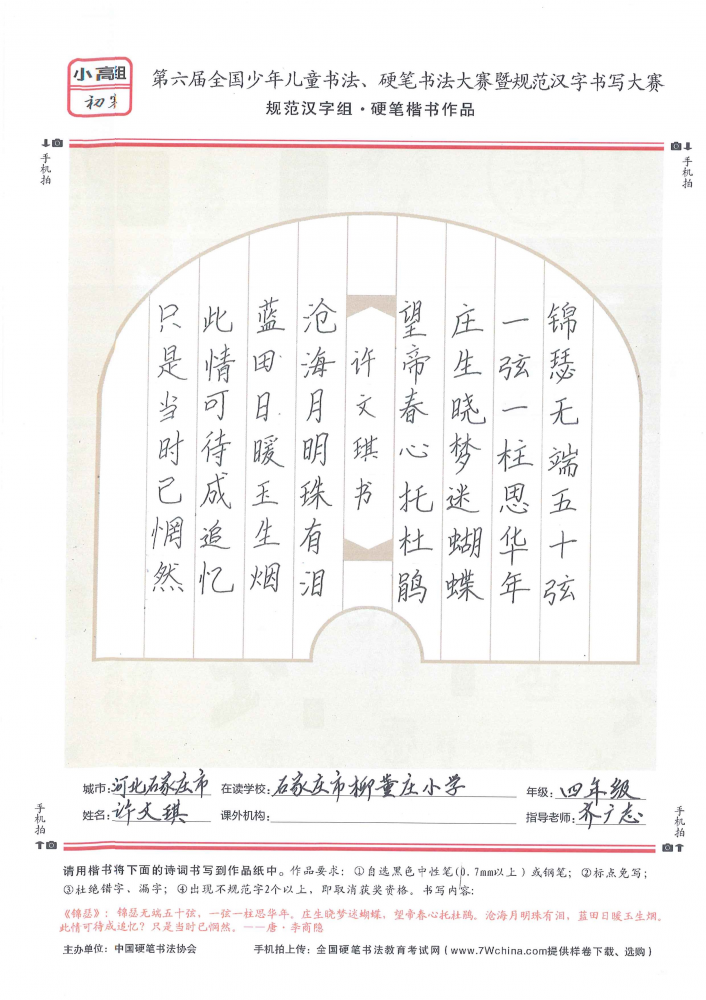 小高组
初集
第六届全国少年儿童书法、硬笔书法大赛暨规范汉字书写大赛
规范汉字组·硬笔楷书作品
手机拍
手机拍
锦瑟无端五十弦
一弦一柱思华年
庄生晓梦迷蝴蝶
望帝春心托杜鹃
许文琪书
沧海月明珠有泪
蓝田日暖玉生烟
此情可待成追忆
只是当时已惘然
城市：河北石家庄市 在读学校：石家庄市柳董庄小学 年级：四年级
姓名：许文琪 课外机构： 指导老师：齐广志
手机拍
手机拍
请用楷书将下面的诗词书写到作品纸中。作品要求：①自选黑色中性笔(0.7mm以上）或钢笔；②标点免写；
③杜绝错字、漏字；④出现不规范字2个以上，即取消获奖资格。书写内容：
《锦瑟》：锦瑟无端五十弦，一弦一柱思华年。庄生晓梦迷蝴蝶，望帝春心托杜鹃。沧海月明珠有泪，蓝田日暖玉生烟。
此情可待成追忆？只是当时已惘然。——唐·李商隐
主办单位：中国硬笔书法协会 手机拍上传：全国硬笔书法教育考试网（www.7Wchina.com提供样卷下载、选购）